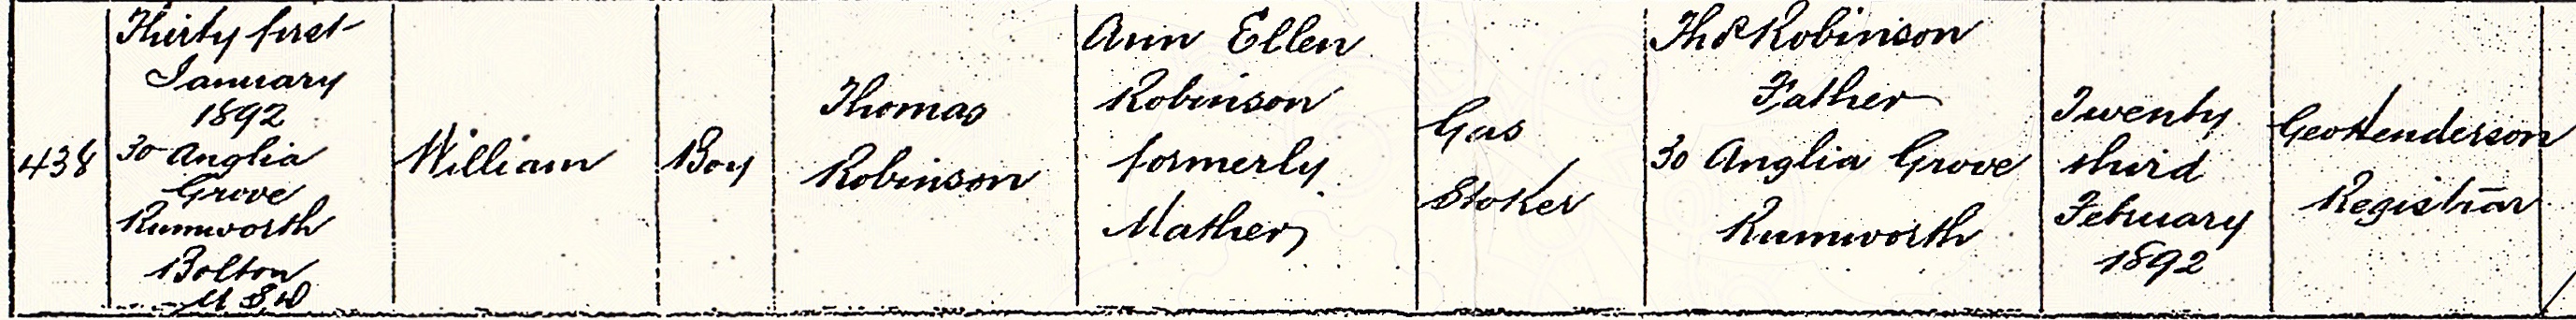 438
Thirty first
January
1892
30 Anglia
Grove
Rumworth
Bolton
U S D
William
Boy
Thomas
Robinson
Ann Ellen
Robinson
formerly
Mather
Gas
Stoker
Thos Robinson
Father
30 Anglia Grove
Rumworth
Twenty
third
February
1892
Geo Henderson
Registrar